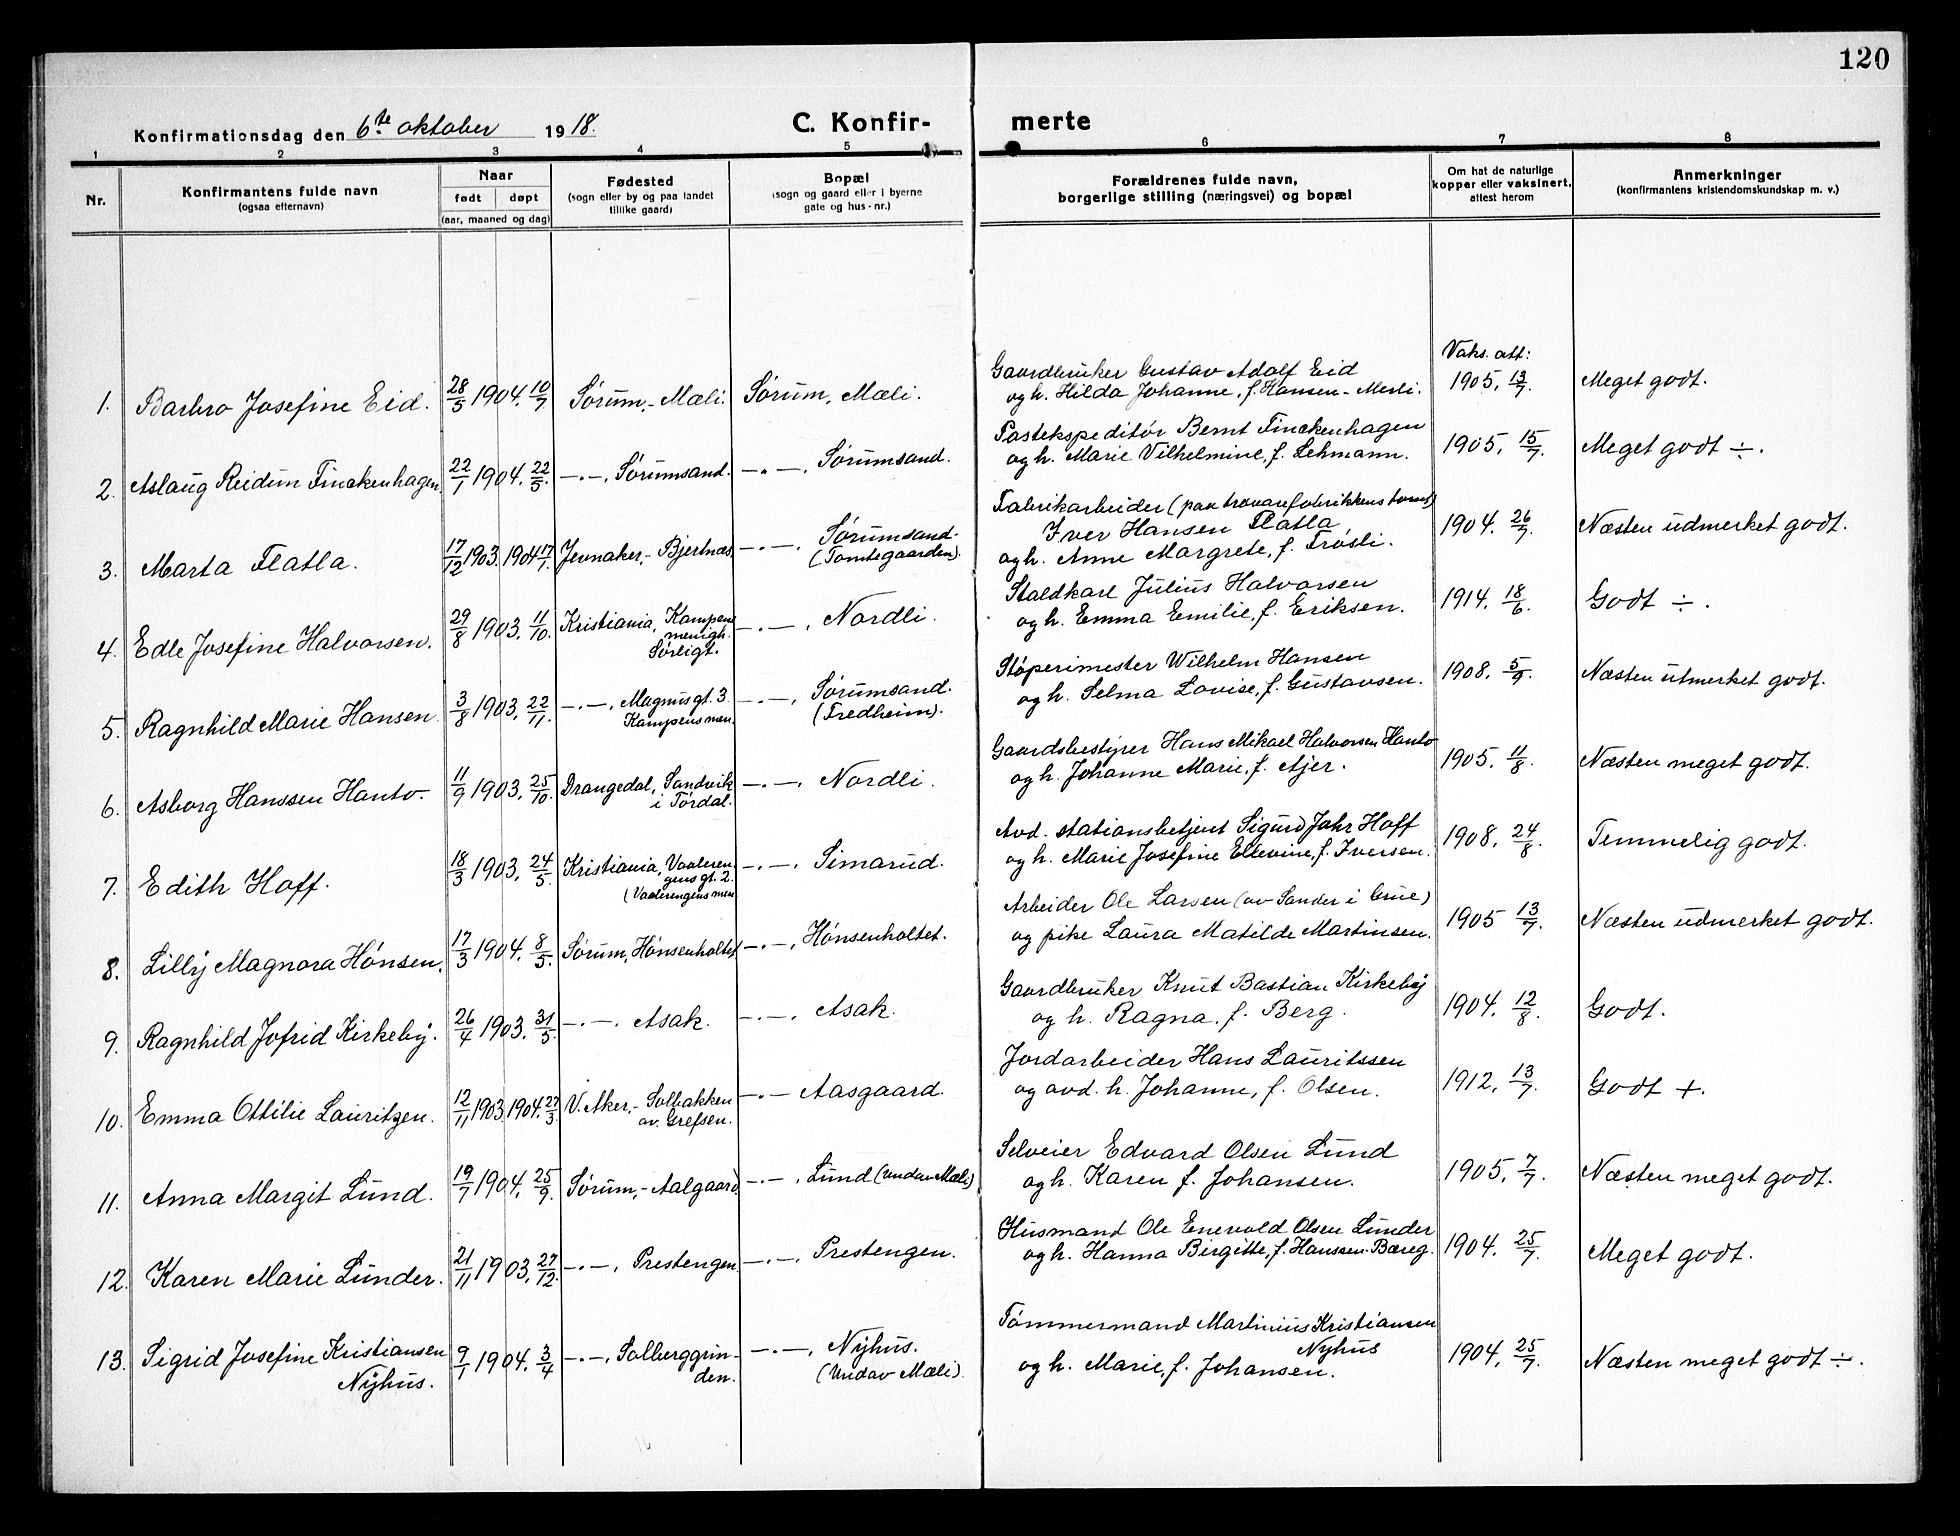 120
Konfirmationsdag den 6te oktober 1918.
C. Konfir- merte
1 2 3 4 5 6 7 8
Nr.
Konfirmantens fulde navn
(ogsaa efternavn)
Naar
født døpt
(aar, maaned og dag)
Fødested
(sogn eller by og paa landet
tillike gaard)
Bopæl
(sogn og gaard eller i byerne
gate og hus-nr.)
Forældrenes fulde navn,
borgerlige stilling (næringsvei) og bopæl
Om hat de naturlige
kopper eller vaksinert,
attest herom
Anmerkninger
(konfirmantens kristendomskundskap m. v.)
1. Barbro Josefine Eid. 28/5 1904. 10/7 Sørum,- Mæli. Sørum, Mæli.
Gaardbruker Gustav Adolf Eid
og h. Hilda Johanne, f. Hansen-Merli.
Vaks. att:
1905, 13/7. Meget godt.
2. Aslaug Reidun Finckenhagen 22/1 1904. 22/5. -"-, Sørumsand. -"-, Sørumsand.
Postekspeditør Bernt Finckenhagen
og h. Marie Vilhelmine, f. Lehmann.
1905, 15/7. Meget godt ÷.
3. Marta Flatla. 17/12 1903. 1904 17/1. Jevnaker,- Bjertnæs -"-, Sørumsand-
(Tomtegaarden).
Fabrikarbeider (paa trævarefabrikkens tomt)
Iver Hansen Flatla
og h. Anne Margrete, f. Trøsli.
1904. 26/7. Næsten udmerket godt.
4. Edle Josefine Halvorsen. 29/8 1903. 11/10. Kristiania, Kampens
menigh.
Sørligt.
-"-, Nordli.
Staldkarl Julius Halvorsen
og h. Emma Emilie, f. Eriksen.
1914. 18/6. Godt ÷.
5. Ragnhild Marie Hansen. 3/8 1903. 22/11. -"-, Magnusgt. 3.
Kampens men.
-"-, Sørumsand.
(Fredheim).
Støperimester Wilhelm Hansen
og h. Selma Lovise, f. Gustavsen.
1908. 5/9. Næsten utmerket godt.
6. Asborg Hanssen Hanto. 11/9 1903. 25/10. Drangedal, Sandvik
i Tørdal.
-"-, Nordli.
Gaardsbestyrer Hans Mikael Halvorsen Hanto
og h. Johanne Marie, f. Ajer.
1905. 11/8. Næsten meget godt.
7. Edith Hoff. 18/3 1903, 24/5. Kristiania, Vaaleren-
gens gt. 2.
(Vaalerengens men.
-"-, Simarud.
Avd. stationsbetjent Sigurd Jahr Hoff
og h. Marie Josefine Ellevine, f. Iversen.
1908. 24/8. Temmelig godt.
8. Lilly Magnora Hønsen. 17/3 1904. 8/5. Sørum, Hønsenholtet -"-, Hønsenholtet.
Arbeider Ole Larsen (av Sander i Grue)
og pike Laura Matilde Martinsen.
1905 13/7. Næsten udmerket godt.
9. Ragnhild Jofrid Kirkeby. 26/4 1903. 31/5. -"-, Asak. -"-, Asak.
Gaardbruker Knut Bastian Kirkeby
og h. Ragna, f. Berg.
1904. 12/8. Godt.
10. Emma Ottilie Lauritzen. 12/11 1903. 1904. 27/3. V. Aker,- Solbakken
av. Grefsen.
-"- Aasgaard.
Jordarbeider Hans Lauritssen
og avd. h. Johanne, f. Olsen.
1912, 13/7. Godt +.
11. Anna Margit Lund. 19/7 1904. 25/9. Sørum,- Aalgaard. -"-, Lund (undav Mæli)
Selveier Edvard Olsen Lund
og h. Karen f. Johansen.
1905, 7/7. Næsten meget godt.
12. Karen Marie Lunder. 21/11 1903. 27/12. -"-, Prestengen. -"-, Prestengen.
Husmand Ole Enevold Olsen Lunder
og h. Hanna Birgitte, f. Hanssen-Bæreg.
1904. 25/7. Meget godt.
13. Sigrid Josefine Kristiansen
Nyhus.
9/1 1904. 3/4 -"-, Solberggrin-
den.
-"-, Nyhus.
(undav Mæli).
Tømmermand Martinius Kristiansen
Nyhus
og h. Marie, f. Johansen.
1904. 25/7. Næsten meget godt ÷.